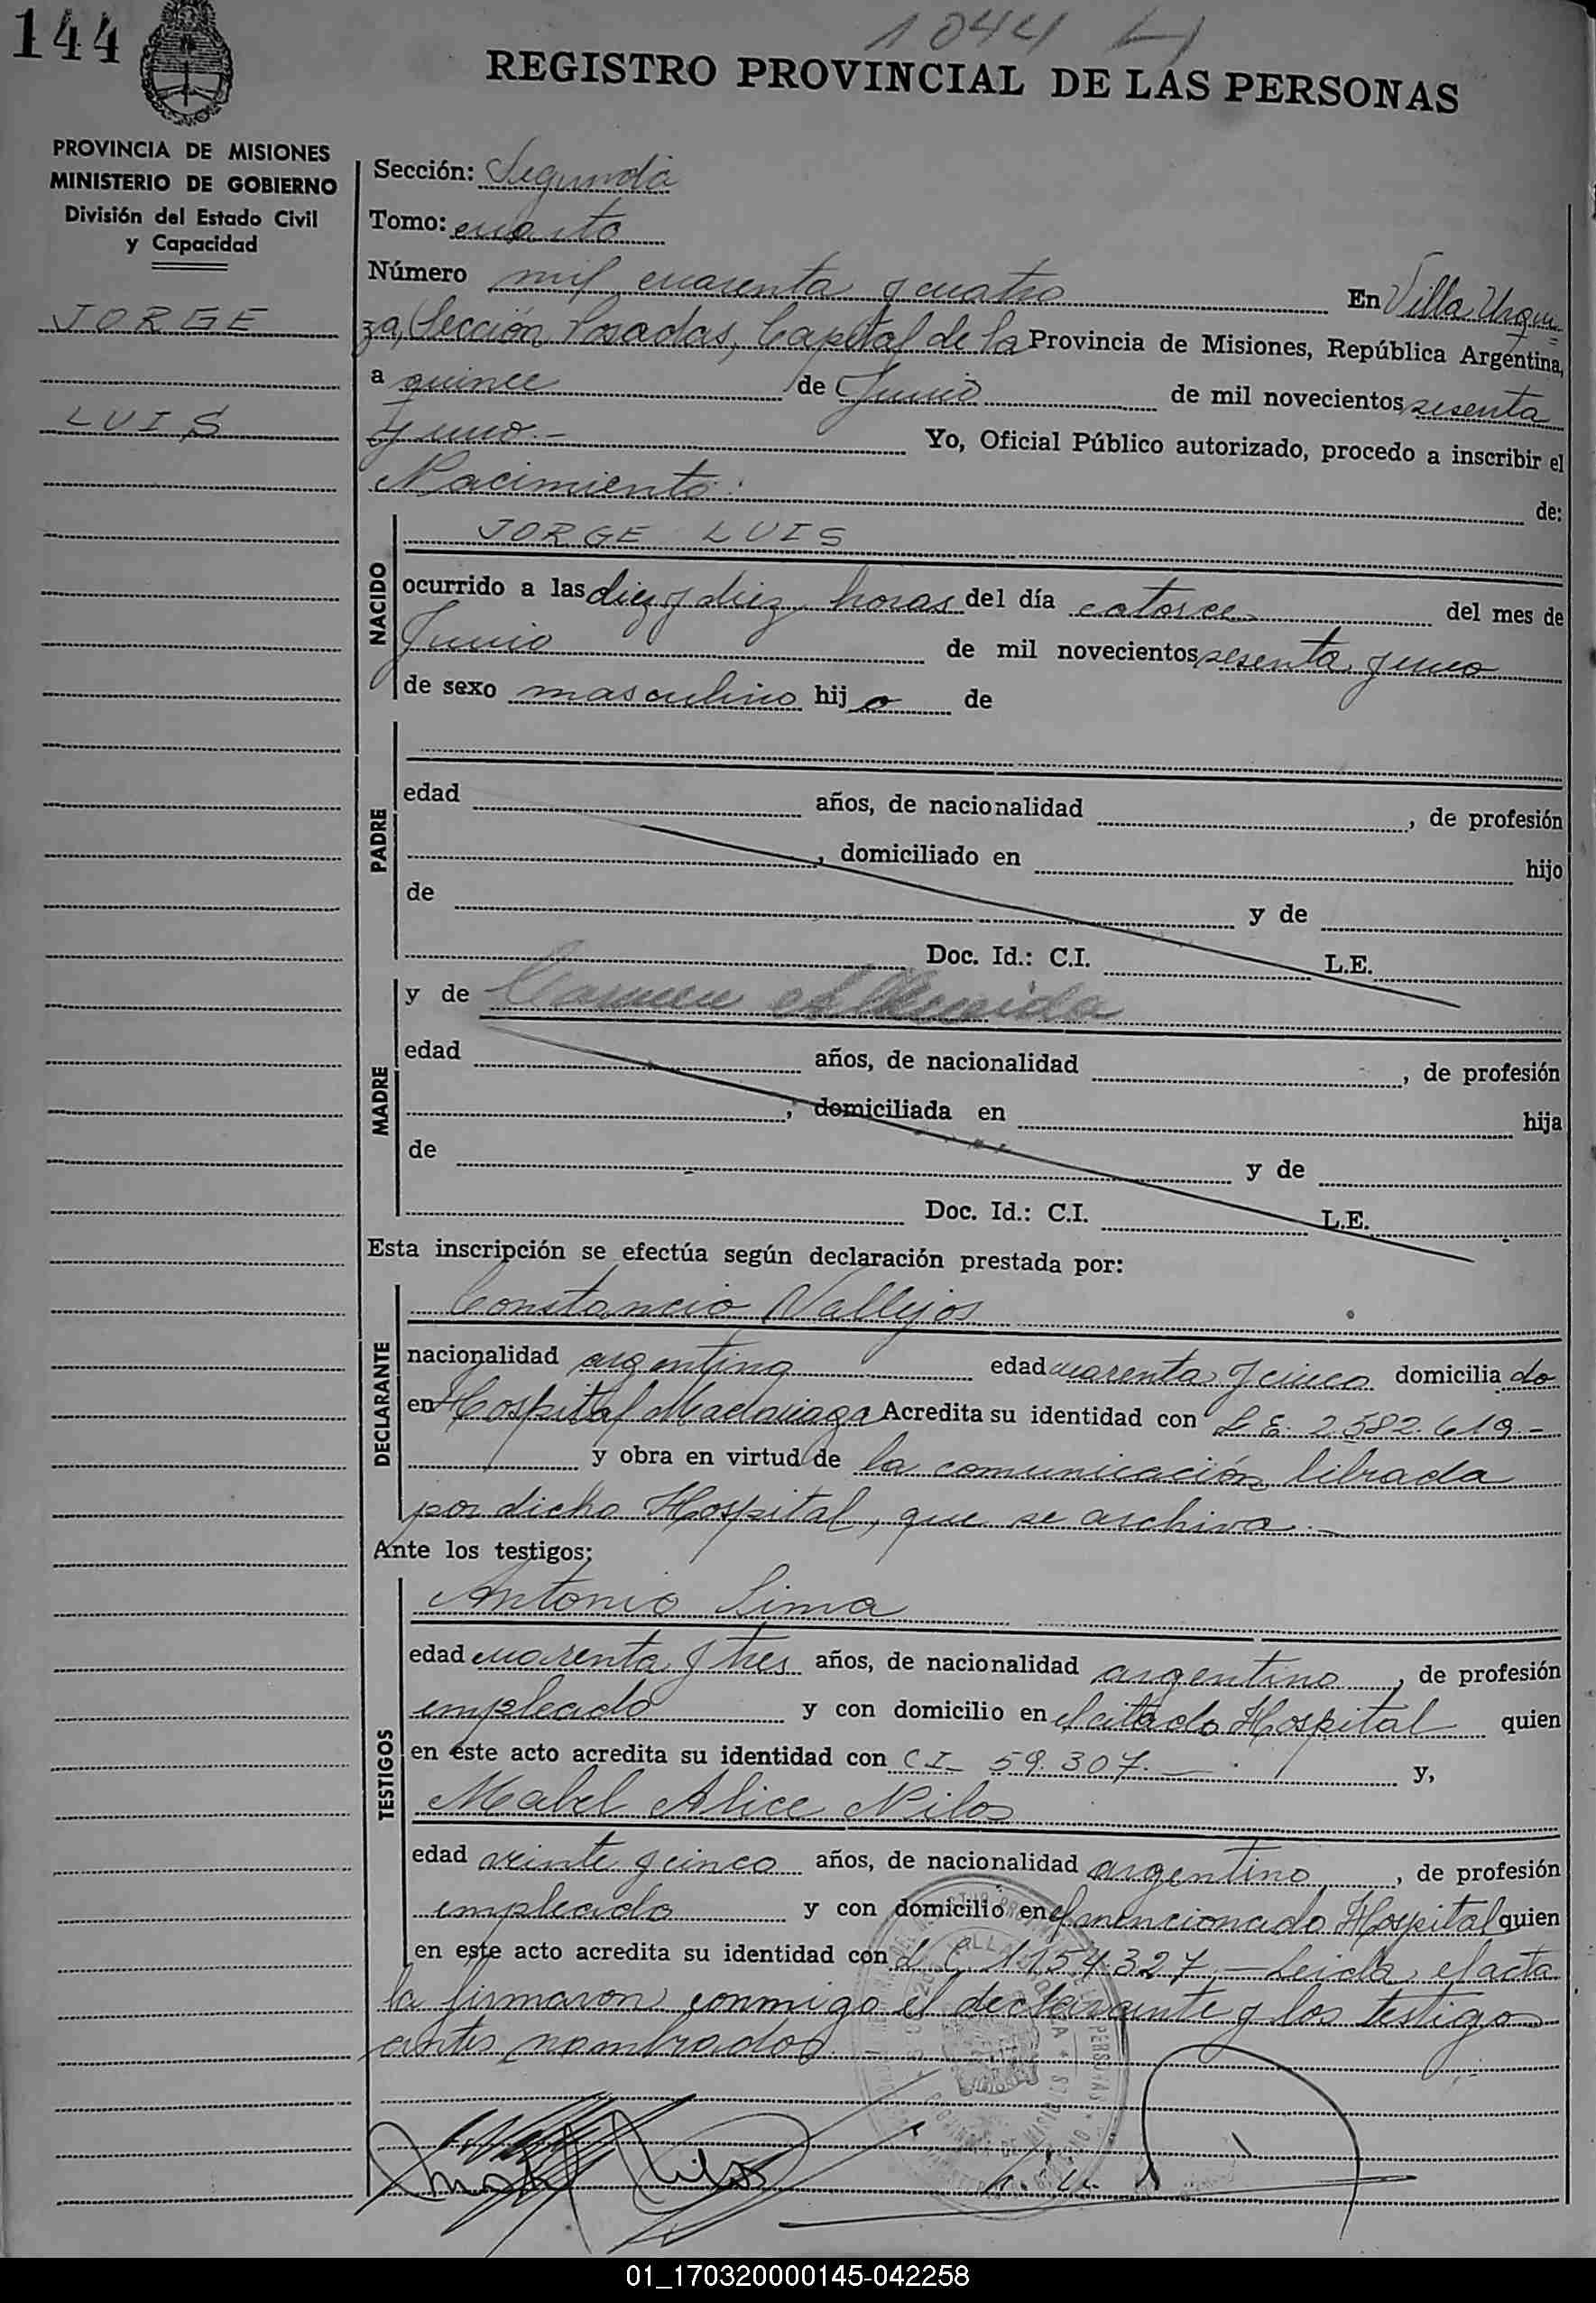 144
1044
REGISTRO PROVINCIAL DE LAS PERSONAS
PROVINCIA DE MISIONES
MINISTERIO DE GOBIERNO
División del Estado Civil
y Capacidad
JORGE
LUIS
Sección: Segunda
Tomo: cuarto
Número mil cuarenta y cuatro En Villa Urqui=
za, Sección Posadas, Capital de la Provincia de Misiones, República Argentina,
a quince de Junio de mil novecientos sesenta
y uno.- Yo, Oficial Público autorizado, procedo a inscribir el
Nacimiento: de:
NACIDO
JORGE LUIS
ocurrido a las diez y diez horas del día catorce del mes de
Junio de mil novecientos sesenta y uno
de sexo masculino hijo de
PADRE
edad años, de nacionalidad , de profesión
, domiciliado en hijo
de y de
Doc. Id.: C.I. L.E.
MADRE
y de Carmen
edad años, de nacionalidad , de profesión
, domiciliada en hija
de y de
Doc. Id.: C.I. L.E.
Esta inscripción se efectúa según declaración prestada por:
DECLARANTE
Constancio Vallejos
nacionalidad argentina edad cuarenta y cinco domiciliado
en Hospital Madariaga Acredita su identidad con L.E. 2.582.619.-
y obra en virtud de la comunicación librada
por dicho Hospital, que se archiva.-
Ante los testigos:
TESTIGOS
Antonio Lima
edad cuarenta y tres años, de nacionalidad argentino, de profesión
empleado y con domicilio en el citado Hospital quien
en este acto acredita su identidad con C I- 59.307.- y,
Mabel Alice Nilos
edad veinte y cinco años, de nacionalidad argentino, de profesión
empleado y con domicilio en el mencionado Hospital quien
en este acto acredita su identidad con L C 1.154.327,- Leida el acta
la firmaron conmigo el declarante y los testigos
antes nombrados.
01_170320000145-042258